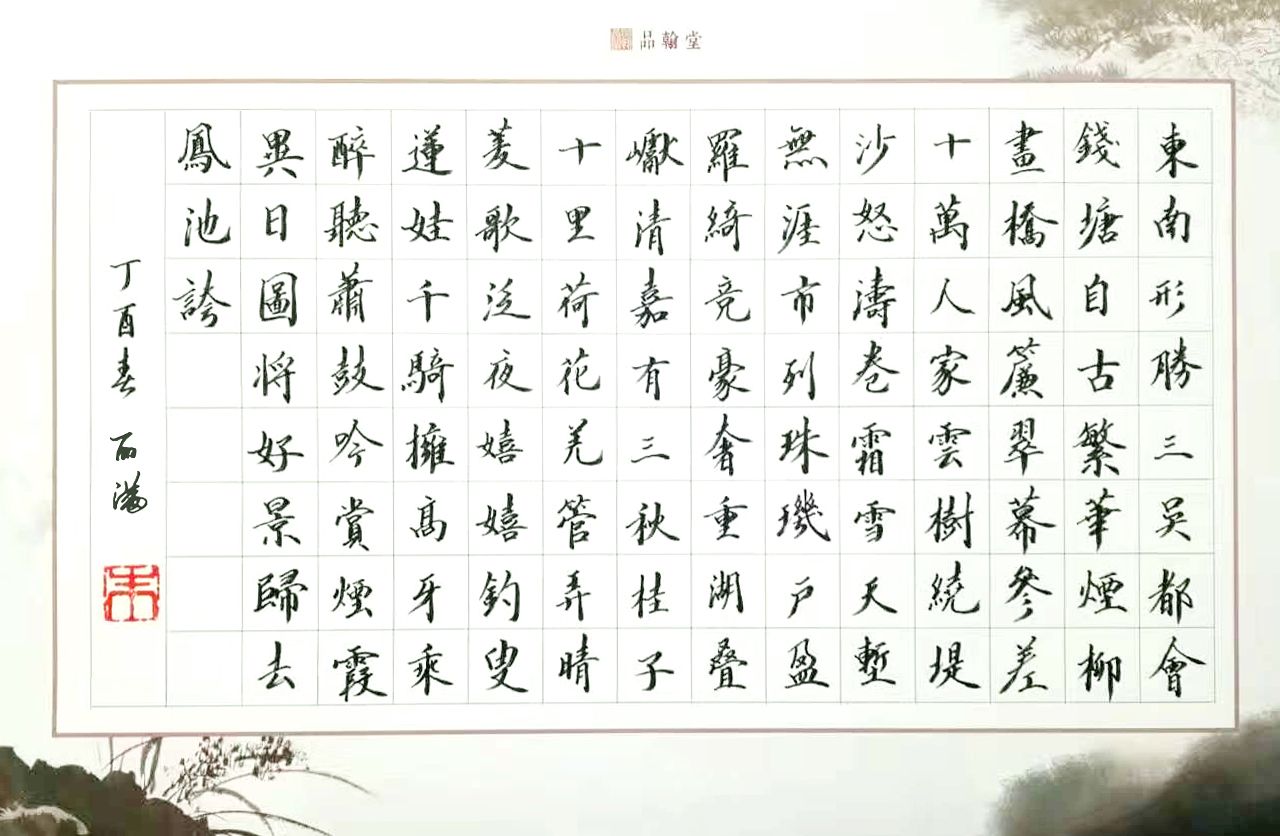 品翰堂
東南形勝三吳都會
錢塘自古繁華煙柳
畫橋風簾翠幕參差
十萬人家雲樹繞堤
沙怒濤卷霜雪天塹
無涯市列珠璣戶盈
羅綺竞豪奢重湖疊
巘清嘉有三秋桂子
十里荷花羌管弄晴
菱歌泛夜嬉嬉釣叟
蓮娃千騎擁高牙乘
醉聽蕭鼓吟賞煙霞
異日圖將好景歸去
鳳池誇
丁酉春